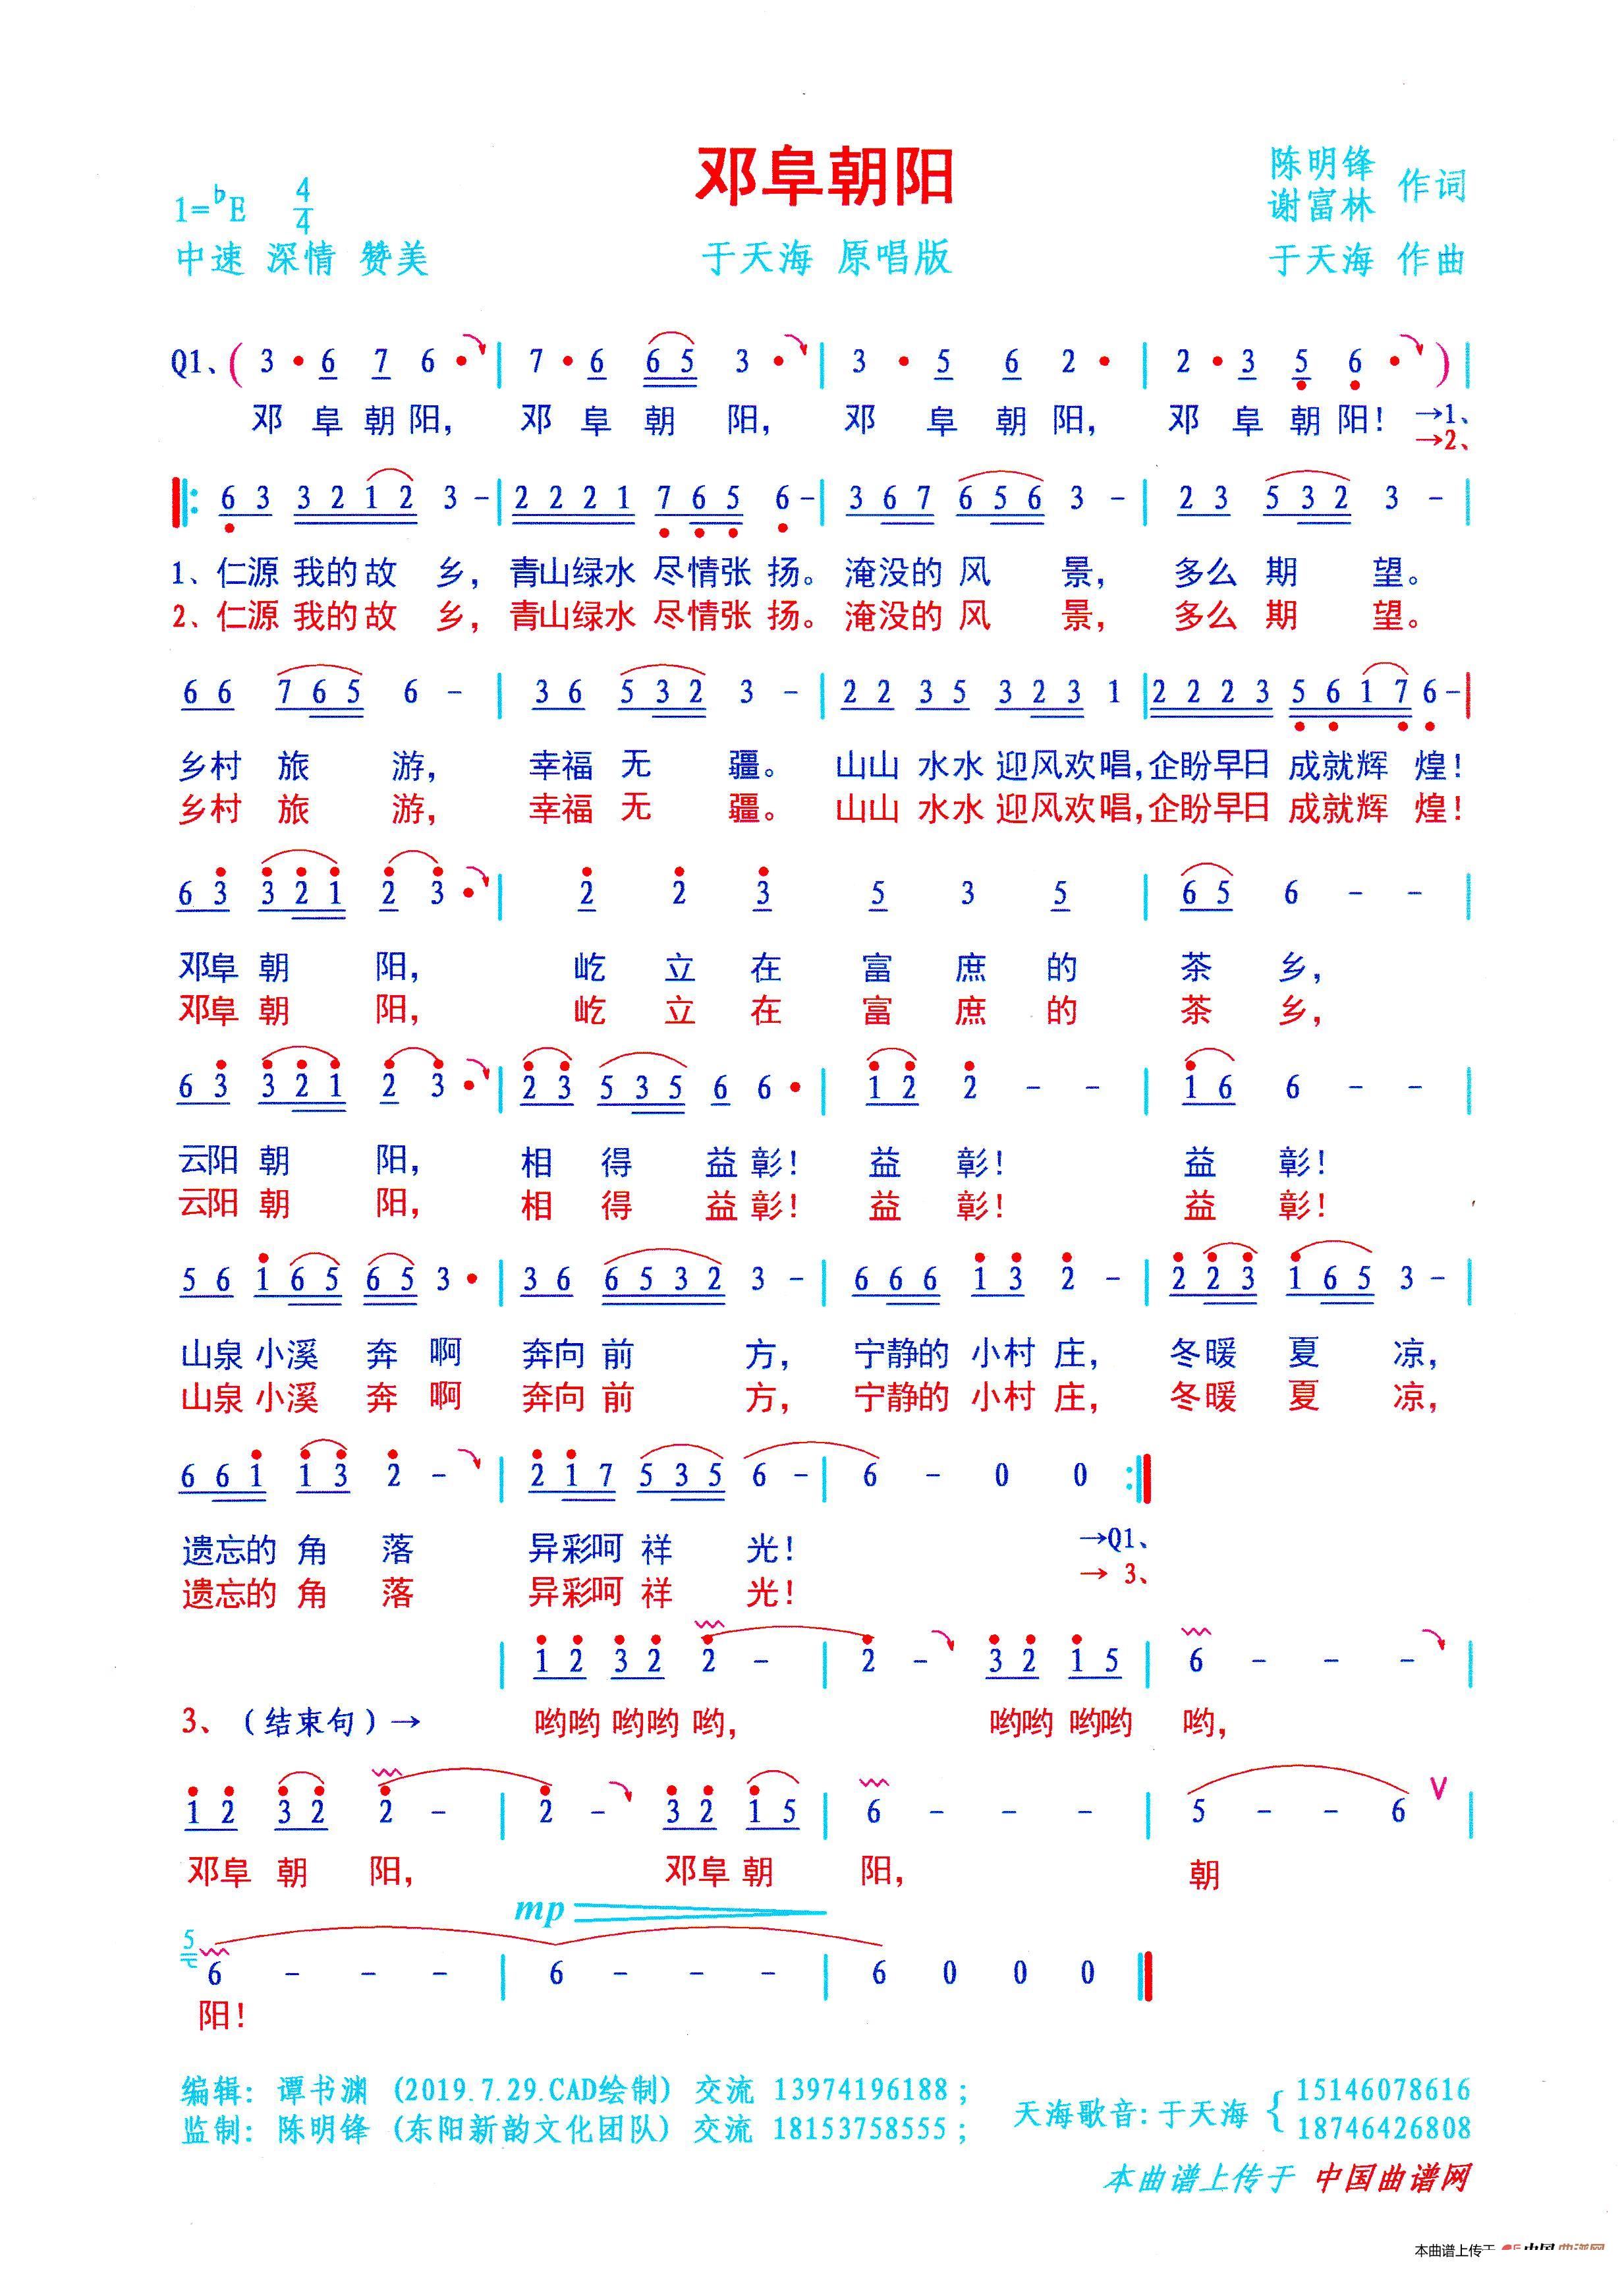 邓阜朝阳
1=♭E 4/4
陈明锋 谢富林 作词
中速 深情 赞美 于天海 原唱版 于天海 作曲
Q1、( 3 · 6 7 6 · | 7 · 6 6 5 3 · | 3 · 5 6 2 · | 2 · 3 5 6 · ) |
邓 阜 朝 阳, 邓 阜 朝 阳, 邓 阜 朝 阳, 邓 阜 朝 阳! →1、
→2、
6 3 3 2 1 2 3 - | 2 2 2 1 7 6 5 6 - | 3 6 7 6 5 6 3 - | 2 3 5 3 2 3 - |
1、仁源 我的 故 乡, 青山绿水 尽情张 扬。淹没的 风 景, 多么 期 望。
2、仁源 我的 故 乡, 青山绿水 尽情张 扬。淹没的 风 景, 多么 期 望。
6 6 7 6 5 6 - | 3 6 5 3 2 3 - | 2 2 3 5 3 2 3 1 | 2 2 2 3 5 6 1 7 6 - |
乡村 旅 游, 幸福 无 疆。 山山 水水 迎风欢唱, 企盼早日 成就辉 煌!
乡村 旅 游, 幸福 无 疆。 山山 水水 迎风欢唱, 企盼早日 成就辉 煌!
6 3 3 2 1 2 3 · | 2 2 3 5 3 5 | 6 5 6 - - |
邓阜 朝 阳, 屹 立 在 富 庶 的 茶 乡,
邓阜 朝 阳, 屹 立 在 富 庶 的 茶 乡,
6 3 3 2 1 2 3 · | 2 3 5 3 5 6 6 · | 1 2 2 - - | 1 6 6 - - |
云阳 朝 阳, 相 得 益彰! 益 彰! 益 彰!
云阳 朝 阳, 相 得 益彰! 益 彰! 益 彰!
5 6 1 6 5 6 5 3 · | 3 6 6 5 3 2 3 - | 6 6 6 1 3 2 - | 2 2 3 1 6 5 3 - |
山泉 小溪 奔 啊 奔向 前 方, 宁静的 小村 庄, 冬暖 夏 凉,
山泉 小溪 奔 啊 奔向 前 方, 宁静的 小村 庄, 冬暖 夏 凉,
6 6 1 1 3 2 - | 2 1 7 5 3 5 6 - | 6 - 0 0 :|
遗忘的 角 落 异彩呵 祥 光! →Q1、
遗忘的 角 落 异彩呵 祥 光! → 3、
| 1 2 3 2 2 - | 2 - 3 2 1 5 | 6 - - - |
3、(结束句)→ 哟哟 哟哟 哟, 哟哟 哟哟 哟,
1 2 3 2 2 - | 2 - 3 2 1 5 | 6 - - - | 5 - - 6 V |
邓阜 朝 阳, 邓阜 朝 阳, 朝
mp
5 6 - - - | 6 - - - | 6 0 0 0
阳!
编辑: 谭书渊 (2019.7.29.CAD绘制) 交流 13974196188;
监制: 陈明锋 (东阳新韵文化团队) 交流 18153758555;
天海歌音: 于天海 { 15146078616
18746426808
本曲谱上传于 中国曲谱网
本曲谱上传于 中国曲谱网